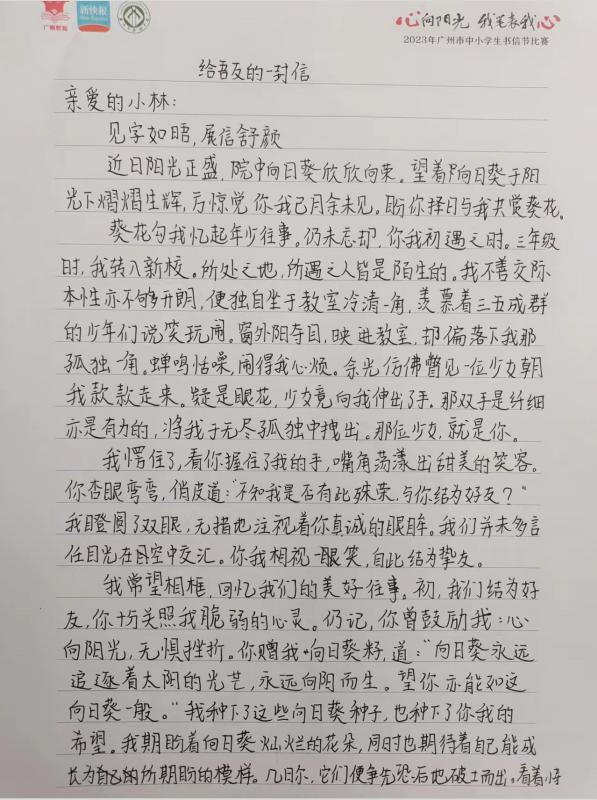 广州教育
新快报
心向阳光 我笔表我心
2023年广州市中小学生书信节比赛
给吾友的一封信
亲爱的小林：
见字如晤，展信舒颜
近日阳光正盛，院中向日葵欣欣向荣。望着向日葵于阳
光下熠熠生辉，方惊觉你我已月余未见。盼你择日与我共赏葵花。
葵花勾我忆起年少往事。仍未忘却，你我初遇之时。三年级
时，我转入新校。所处之地，所遇之人皆是陌生的。我不善交际
本性亦不够开朗，便独自坐于教室冷清一角，羡慕着三五成群
的少年们说笑玩闹。窗外阳夺目，映进教室，却偏落下我那
孤独一角。蝉鸣恬噪，闹得我心烦。余光仿佛瞥见一位少女朝
我款款走来。疑是眼花，少女竟向我伸出了手。那双手是纤细
亦是有力的，将我于无尽孤独中拽出。那位少女，就是你。
我愣住了，看你握住了我的手，嘴角荡漾出甜美的笑容。
你杏眼弯弯，俏皮道：“不知我是否有此殊荣，与你结为好友？”
我瞪圆了双眼，无措地注视着你真诚的眼眸。我们并未多言
任目光在空中交汇。你我相视一眼笑，自此结为挚友。
我常望相框，回忆我们的美好往事。初，我们结为好
友，你十分关照我脆弱的心灵。仍记，你曾鼓励我：心
向阳光，无惧挫折。你赠我向日葵籽，道：“向日葵永远
追逐着太阳的光芒，永远向阳而生。望你亦能如这
向日葵一般。”我种下了这些向日葵种子，也种下了你我的
希望。我期盼着向日葵灿烂的花朵，同时也期待着自己能成
长为自己的所期盼的模样。几日尔，它们便争先恐后地破土而出。看着